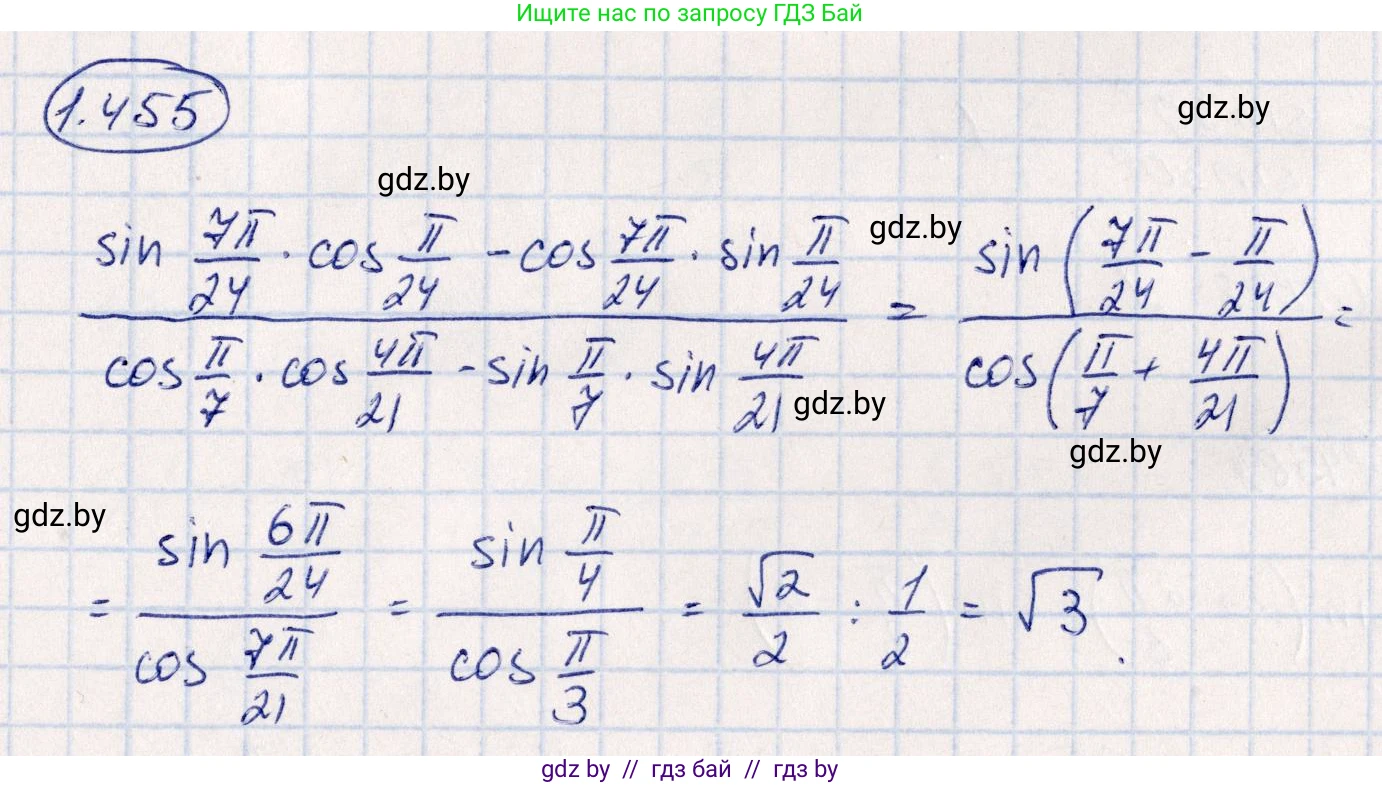 Ищите нас по запросу ГДЗ Бай
1.455
gdz.by
gdz.by
gdz.by
(sin 7π/24 · cos π/24 - cos 7π/24 · sin π/24) / (cos π/7 · cos 4π/21 - sin π/7 · sin 4π/21) = sin(7π/24 - π/24) / cos(π/7 + 4π/21) =
gdz.by
gdz.by
gdz.by
= sin 6π/24 / cos 7π/21 = sin π/4 / cos π/3 = √2/2 : 1/2 = √3.
gdz by // гдз бай // гдз by